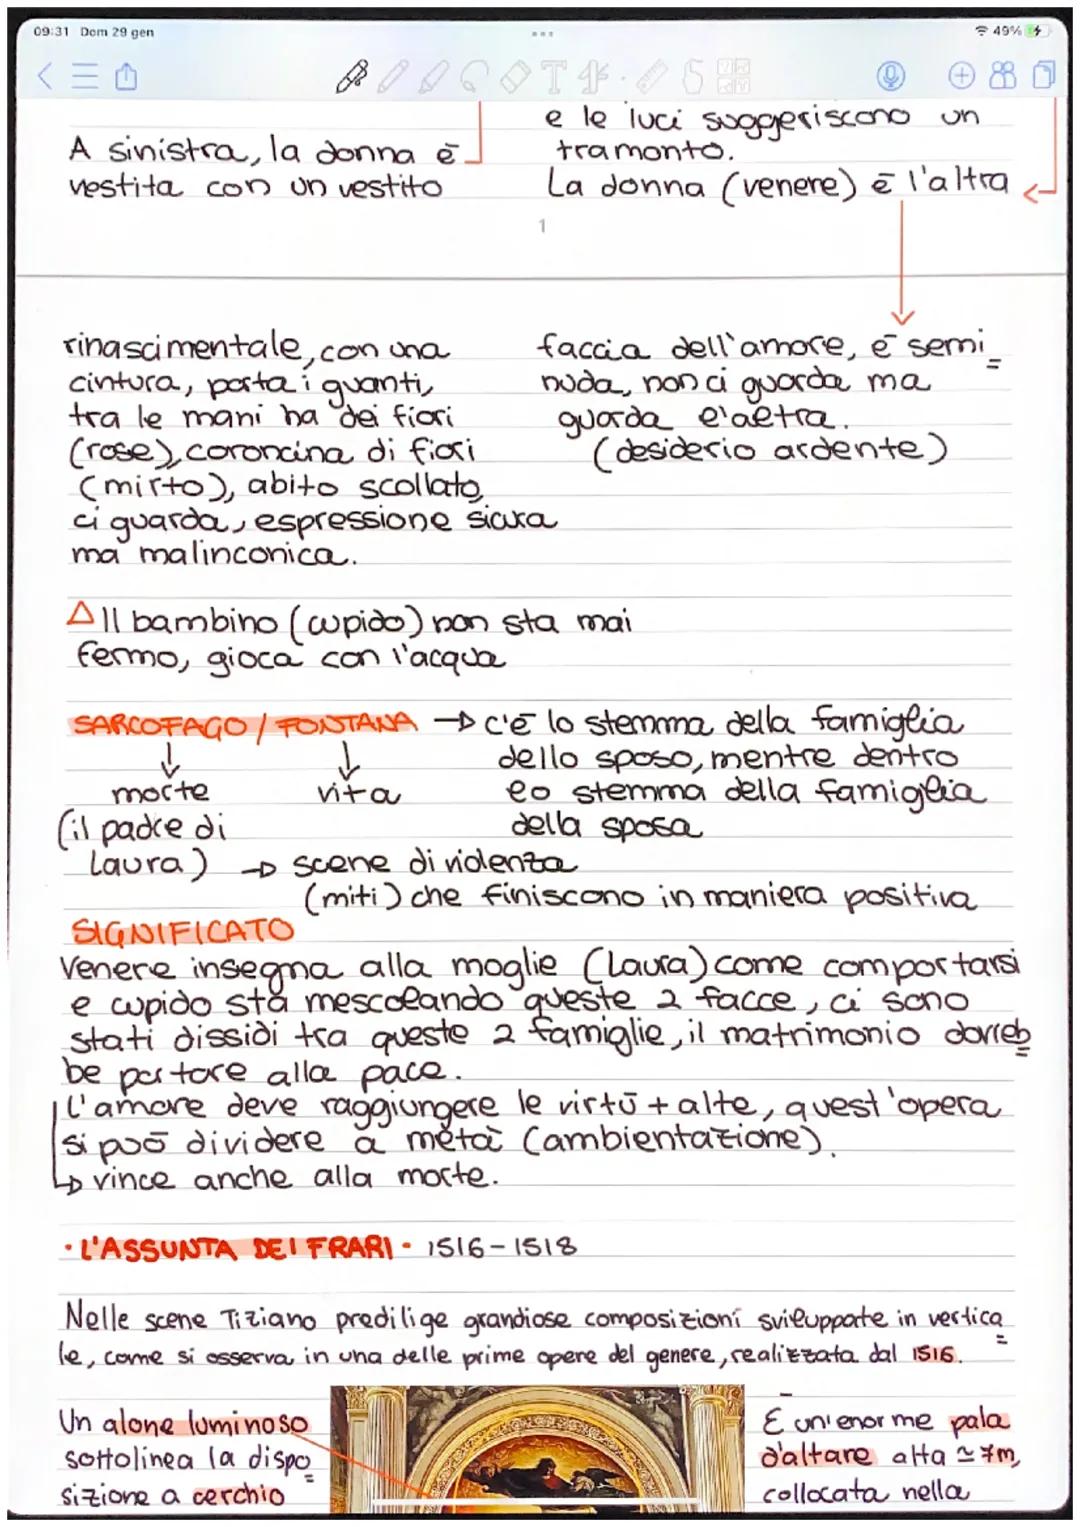 09:31 Dom 29 gen
49%
A sinistra, la donna è
vestita con un vestito
e le luci suggeriscono un
tramonto.
La donna (venere) è l'altra
1
rinascimentale, con una
cintura, porta i guanti,
tra le mani ha dei fiori
(rose), coroncina di fiori
(mirto), abito scollato,
ci guarda, espressione sicura
ma malinconica.
faccia dell'amore, è semi
nuda, non ci guarda ma
guarda l'altra.
(desiderio ardente)
Δ Il bambino (cupido) non sta mai
fermo, gioca con l'acqua
SARCOFAGO / FONTANA → c'è lo stemma della famiglia
dello sposo, mentre dentro
lo stemma della famiglia
della sposa
↓ ↓
morte vita
(il padre di
Laura) → scene di violenza
(miti) che finiscono in maniera positiva
SIGNIFICATO
Venere insegna alla moglie (Laura) come comportarsi
e cupido sta mescolando queste 2 facce, ci sono
stati dissidi tra queste 2 famiglie, il matrimonio dovreb
be portare alla pace.
L'amore deve raggiungere le virtù + alte, quest'opera
si può dividere a metà (ambientazione).
↳ vince anche alla morte.
• L'ASSUNTA DEI FRARI • 1516-1518
Nelle scene Tiziano predilige grandiose composizioni sviluppate in vertica
le, come si osserva in una delle prime opere del genere, realizzata dal 1516.
Un alone luminoso
sottolinea la dispo
sizione a cerchio
È un'enorme pala
d'altare alta ≃ 7m,
collocata nella